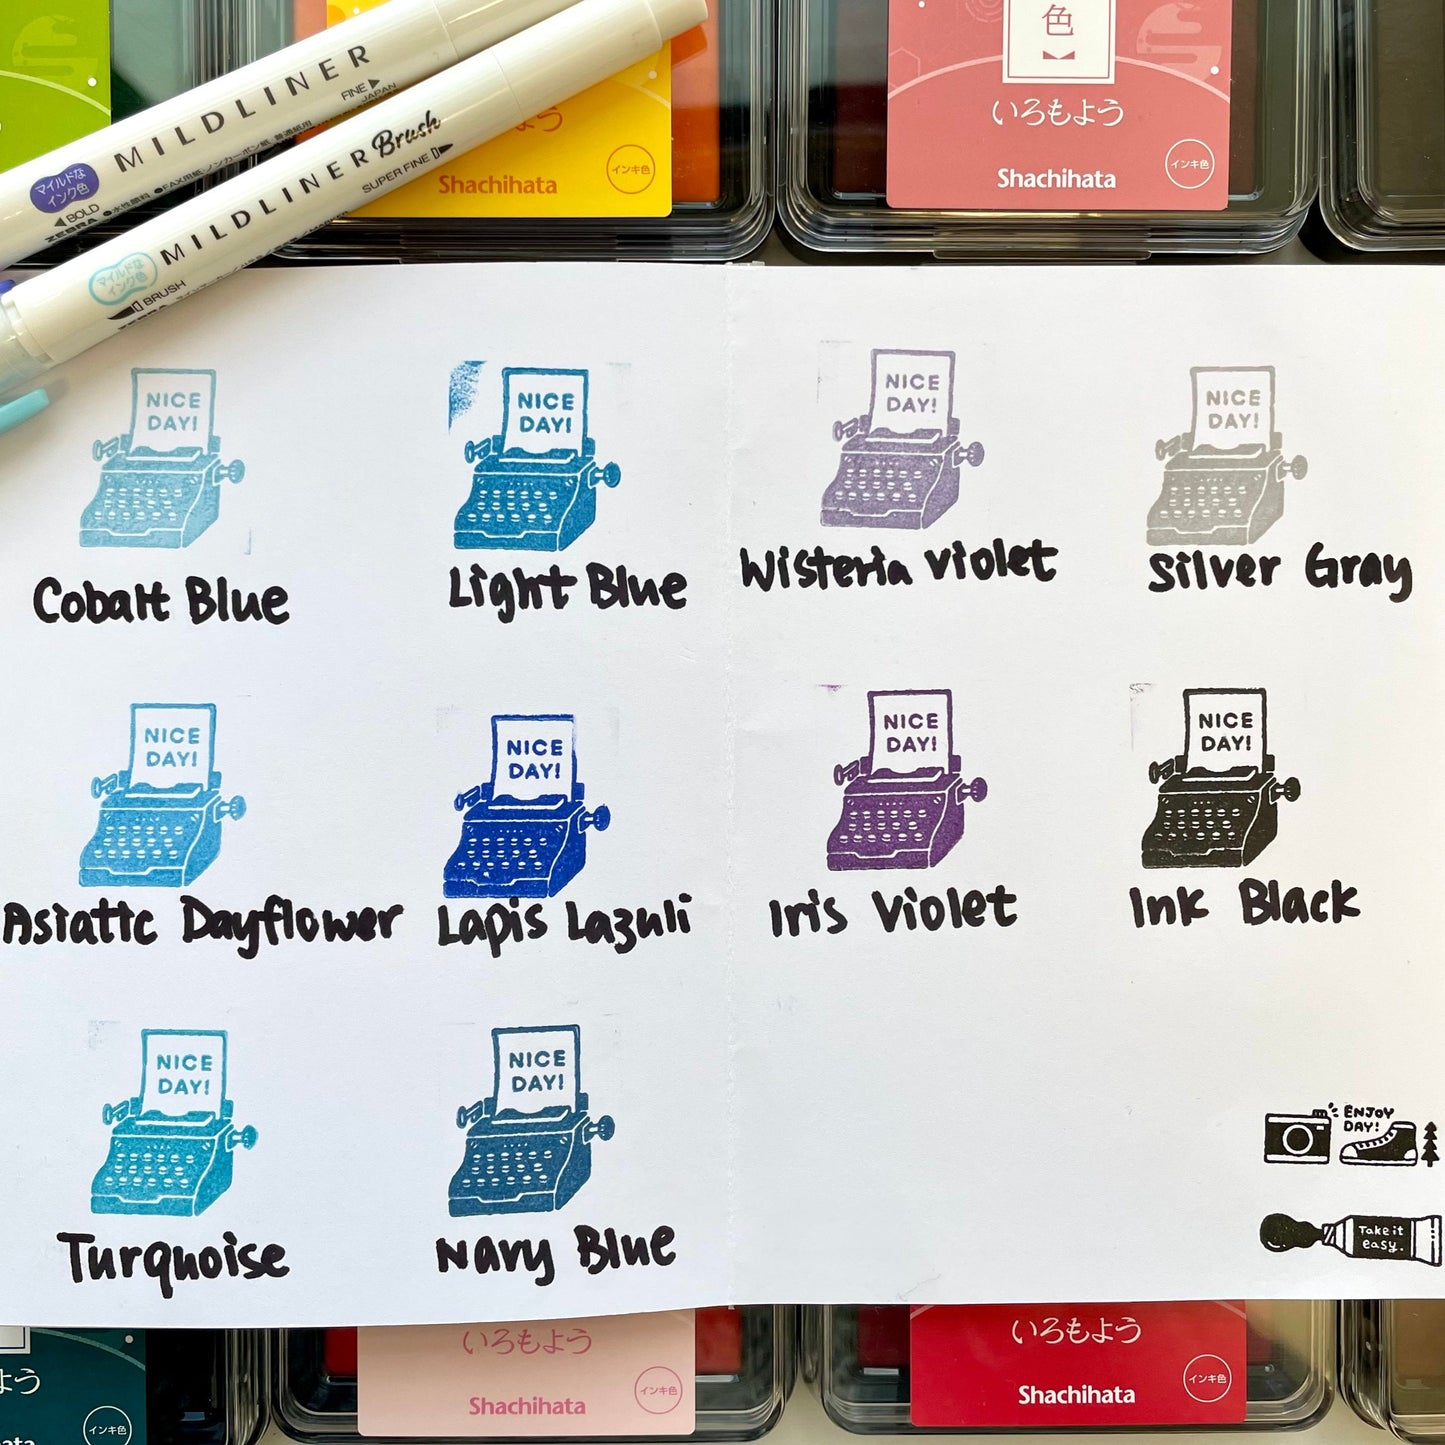 MILDLINER
FINE
JAPAN
マイルドな
インク色
BOLD
ZEBRA
MILDLINER Brush
SUPER FINE
マイルドな
インク色
BRUSH
ZEBRA
Shachihata
インキ色
色
いろもよう
Shachihata
インキ色
NICE
DAY!
Cobalt Blue
NICE
DAY!
Light Blue
NICE
DAY!
Wisteria Violet
NICE
DAY!
Silver Gray
NICE
DAY!
Asiatic Dayflower
NICE
DAY!
Lapis Lazuli
NICE
DAY!
Iris Violet
NICE
DAY!
Ink Black
NICE
DAY!
Turquoise
NICE
DAY!
Navy Blue
ENJOY
DAY!
Take it
easy.
インキ色
いろもよう
Shachihata
インキ色
いろもよう
Shachihata
インキ色